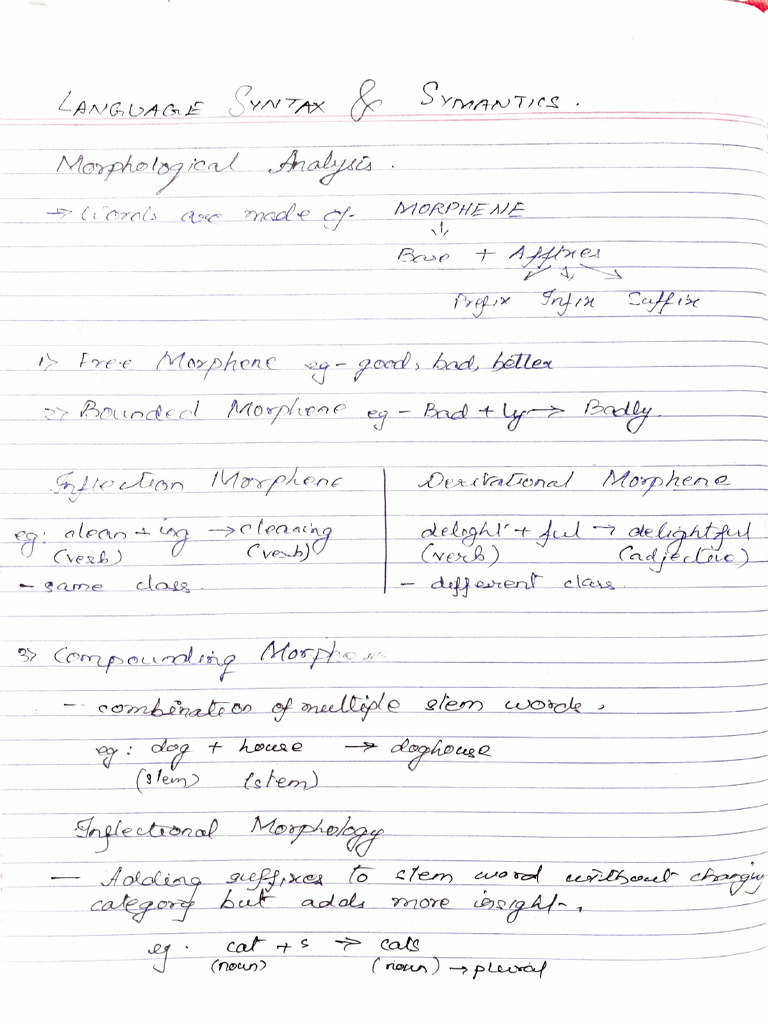 LANGUAGE SYNTAX & SYMANTICS.
Morphological Analysis.
→ Words are made of MORPHENE
Base + Affixes
Prefix Infix Suffix
1) Free Morphene eg- good, bad, better
2) Bounded Morphene eg - Bad + ly → Badly.
Inflection Morphene | Derivational Morphene
eg: clean + ing → cleaning | delight + ful → delightful
(verb) (verb) | (verb) (adjective)
- same class. | - different class.
3) Compounding Morphene
- combination of multiple stem words.
eg: dog + house → doghouse
(stem) (stem)
Inflectional Morphology
- Adding suffixes to stem word without changing
category but adds more insight.
eg. cat + s → cats
(noun) (noun) → plural